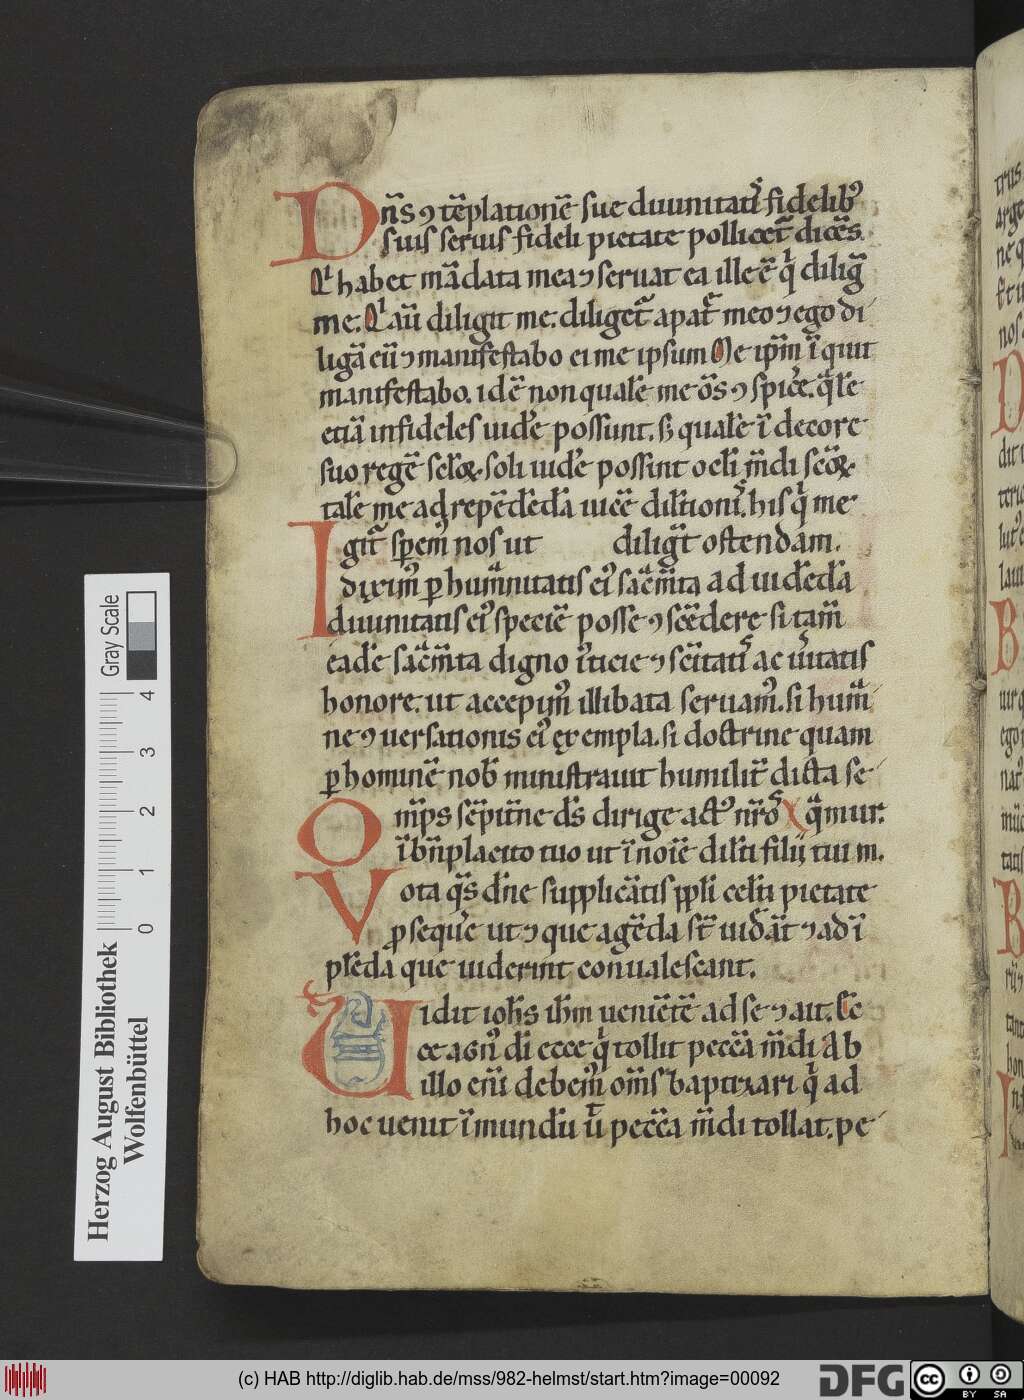 Dn̄s ꝯtēplationē sue diuinitatis fidelibꝰ
suis seruis fideli pietate pollicet᷑ dicēs.
Qͥ habet mādata mea ⁊ seruat ea ille ē qͥ diligit
me. Qͥ aūt diligit me. diliget᷑ a patre meo ⁊ ego di
ligā eū ⁊ manifestabo ei me ipsum Me ip̄m īquit
manifestabo. id ē non qualē me om̄s ꝯspicē. qualē
etiā infideles uidē possunt. sꝫ qualē ī decore
suo regē sc̄oꝝ soli uidē possint ocl̄i mūdi sc̄oꝝ.
talē me ad repēdēdā uicē dilc̄tionis. his qͥ me
gitᷓ sꝑem̄ nos ut diligūt ostendam.
I diximꝰ ꝑ humanitatis eiꝰ sacͣm̄ta ad uidēdā
diuinitatis eiꝰ speciē posse ꝯscēdere si tam̄
eadē sacͣm̄ta digno iusticie ⁊ sc̄itatis ac ueritatis
honore. ut accepimꝰ illibata seruamꝰ. si huma
ne ꝯuersationis eiꝰ exempla. si doctrine quam
ꝑ hominē nob̄ ministrauit humilit̄ dicta se
Om̄ps sēpit̄ne ds̄ dirige actꝰ nr̄os qͣmur.
ī bn̄placito tuo ut ī noīe dilc̄ti filij tui m.
Vota qs̄ dn̄e supplicātis pp̄li celesti pietate
ꝓsequē ut ⁊ que agēda st̄ uidāt ⁊ ad ī
plēda que uiderint conualescant.
Uidit ioh̄s ih̄m ueniētē ad se ⁊ ait. Ec
ce agnꝰ di ecce qͥ tollit pecc̄a mūdi Ab
illo eni debemꝰ om̄s baptizari qͥ ad
hoc uenit ī mundū ut pecc̄a mūdi tollat. pe
Herzog August Bibliothek
Wolfenbüttel
Gray Scale
0 1 2 3 4
(c) HAB http://diglib.hab.de/mss/982-helmst/start.htm?image=00092
DFG
cc BY SA